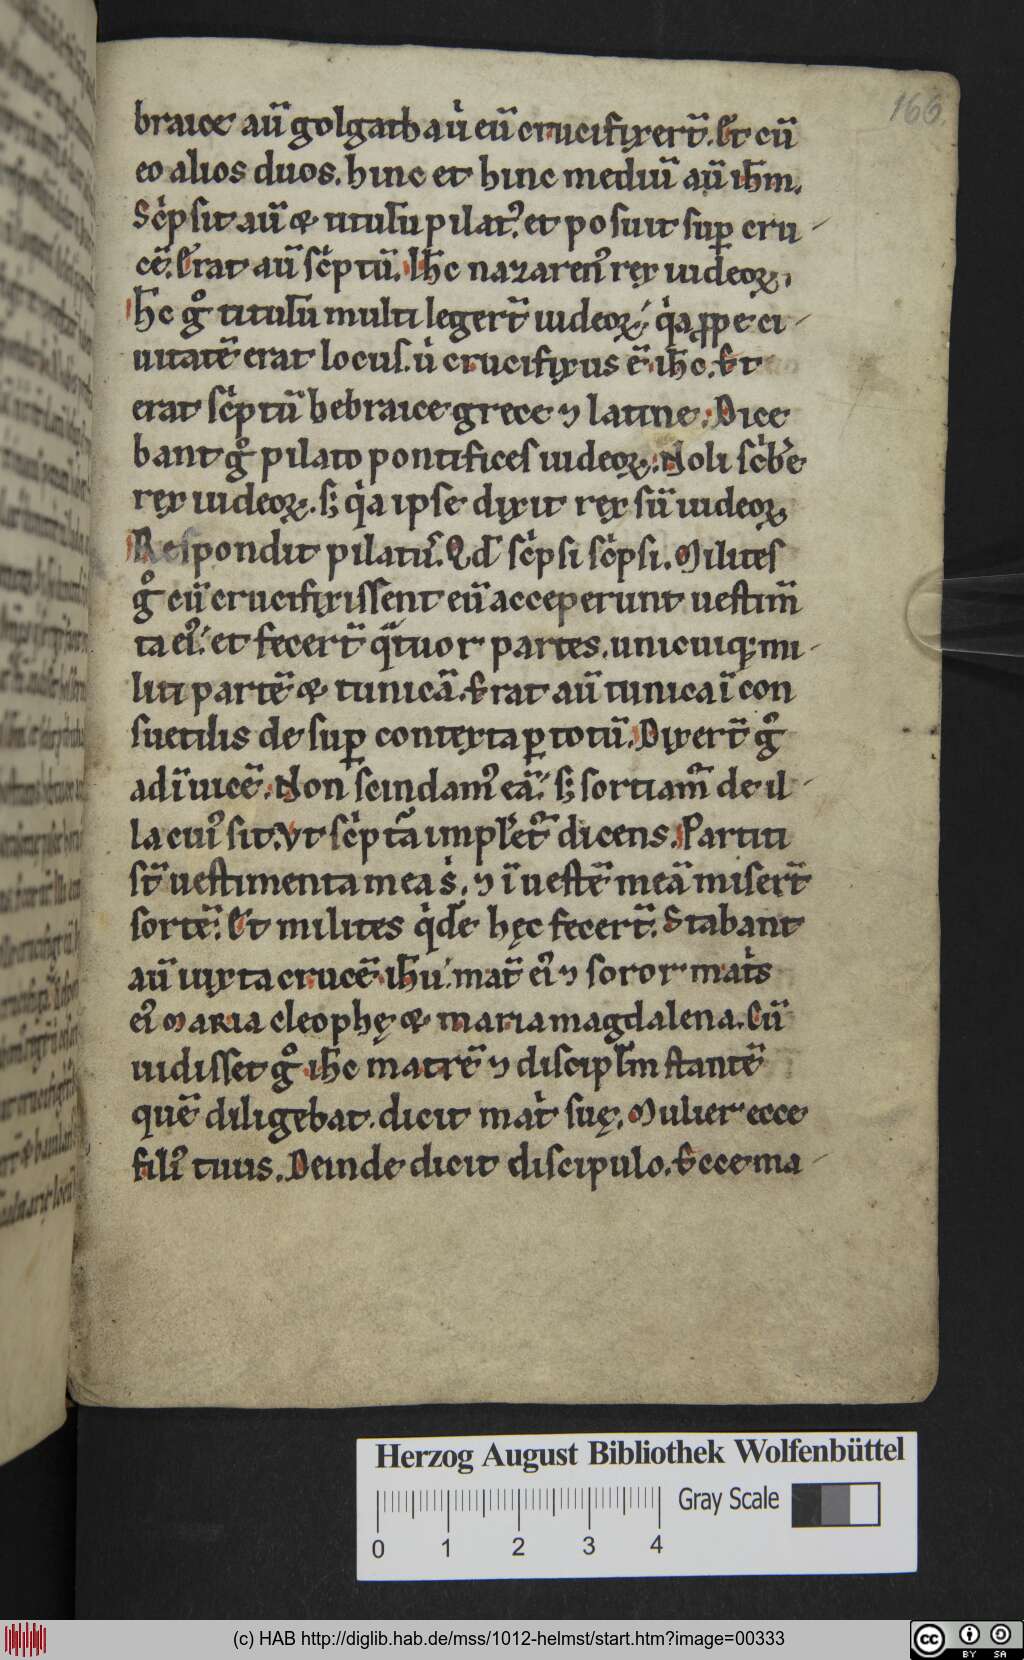 166
braice aū golgatha ů eū crucifixer̄t. Et cū
eo alios duos. hinc et hinc mediū aū ih̄m.
Sc̍psit aū & titulū pilatꝰ. et posuit suꝑ cru
cē. Erat aū sc̍ptū. Ih̄c nazarenꝰ rex iudeoꝝ.
h̄c gͦ titulū multi leger̄t iudeoꝝ. q̍a ꝓpe ci
uitatē erat locus. u̍ crucifixus ē ih̄c. Et
erat sc̍ptū hebraice grece ⁊ latine. Dice
bant gͦ pilato pontifices iudeoꝝ. Noli sc̍bͤe
rex iudeoꝝ. sꝫ q̍a ipse dixit rex sū iudeoꝝ
Respondit pilatus. Qd̄ sc̍psi sc̍psi. Milites
gͦ cū crucifixissent eū acceperunt uestim̄
ta eiꝰ. et fecer̄t qᷓtuor partes. unicuiqꝫ mi
liti partē & tunicā. Erat aū tunica ī con
sutilis desuꝑ contexta ꝑ totū. Dixer̄t gͦ
ad īuicē. Non scindamꝰ eā. sꝫ sortiamᷓ de il
la cuiꝰ sit. Vt sc̍ptᷓa impl̄etᷓ dicens. Partiti
st̄ uestimenta mea s̍. ⁊ ī uestē meā miser̄t
sortē. Et milites q̍dē hęc fecer̄t. Stabant
aū iuxta crucē ih̄u. mat̄ eiꝰ ⁊ soror mat̍s
eiꝰ maria cleophę & maria magdalena. Cū
uidisset gͦ ih̄c matrē ⁊ discipl̄m stantē
quē diligebat. dicit mat̍ suę. Mulier ecce
filiꝰ tuus. Deinde dicit discipulo. Ecce ma
Herzog August Bibliothek Wolfenbüttel
Gray Scale
0 1 2 3 4
(c) HAB http://diglib.hab.de/mss/1012-helmst/start.htm?image=00333
cc BY SA